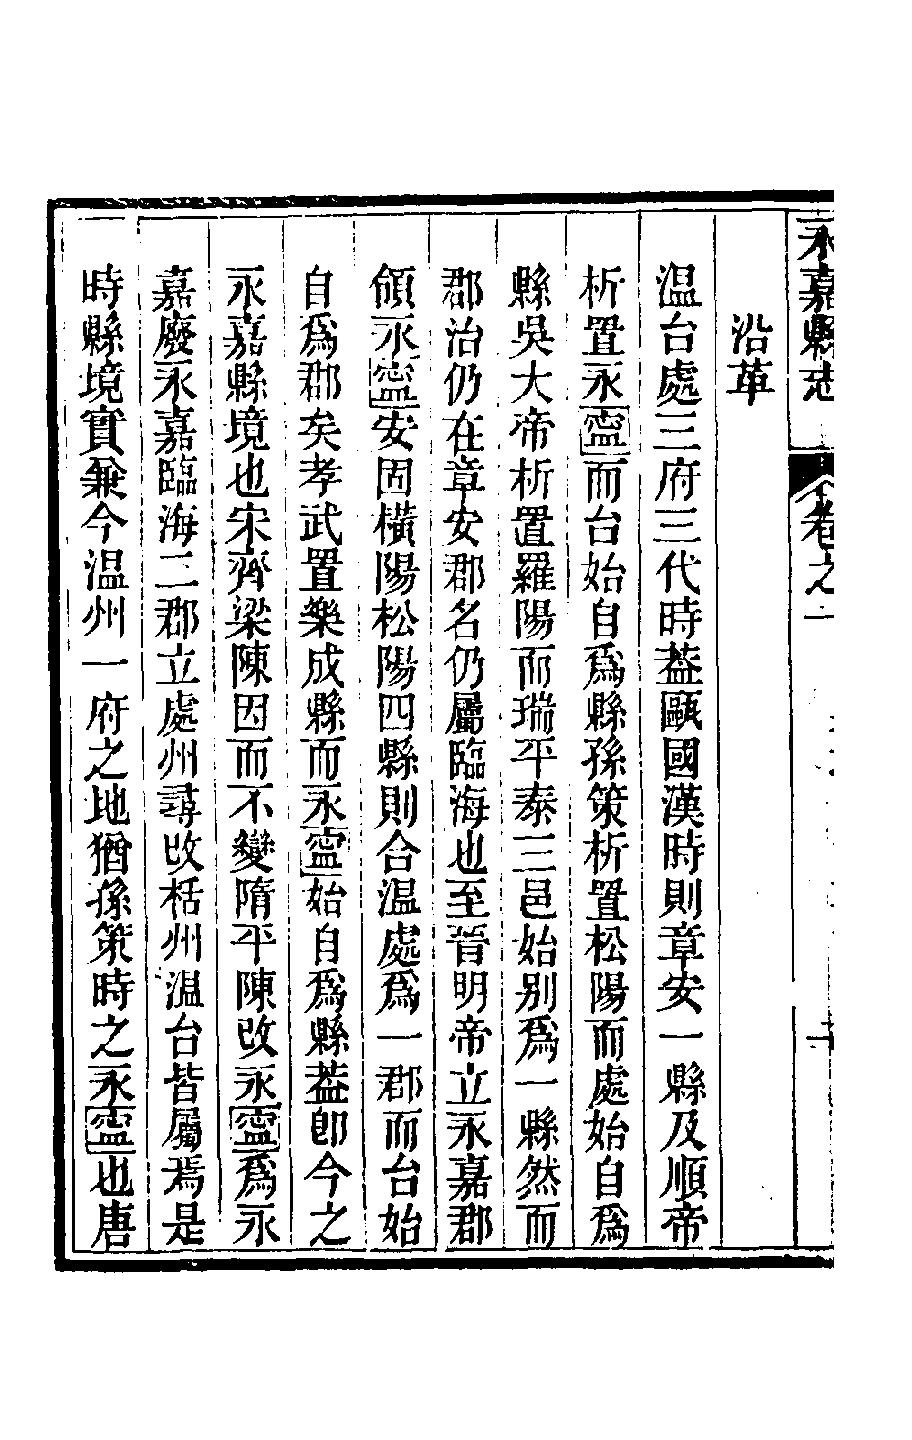 永嘉縣志 卷之一
沿革
温台處三府三代時葢甌國漢時則章安一縣及順帝
析置永寍而台始自爲縣孫策析置松陽而處始自爲
縣吳大帝析置羅陽而瑞平泰三邑始別爲一縣然而
郡治仍在章安郡名仍屬臨海也至晉明帝立永嘉郡
領永寍安固橫陽松陽四縣則合温處爲一郡而台始
自爲郡矣孝武置樂成縣而永寍始自爲縣葢卽今之
永嘉縣境也宋齊梁陳因而不變隋平陳改永寍爲永
嘉廢永嘉臨海二郡立處州尋改栝州温台皆屬焉是
時縣境實兼今温州一府之地猶孫策時之永寍也唐